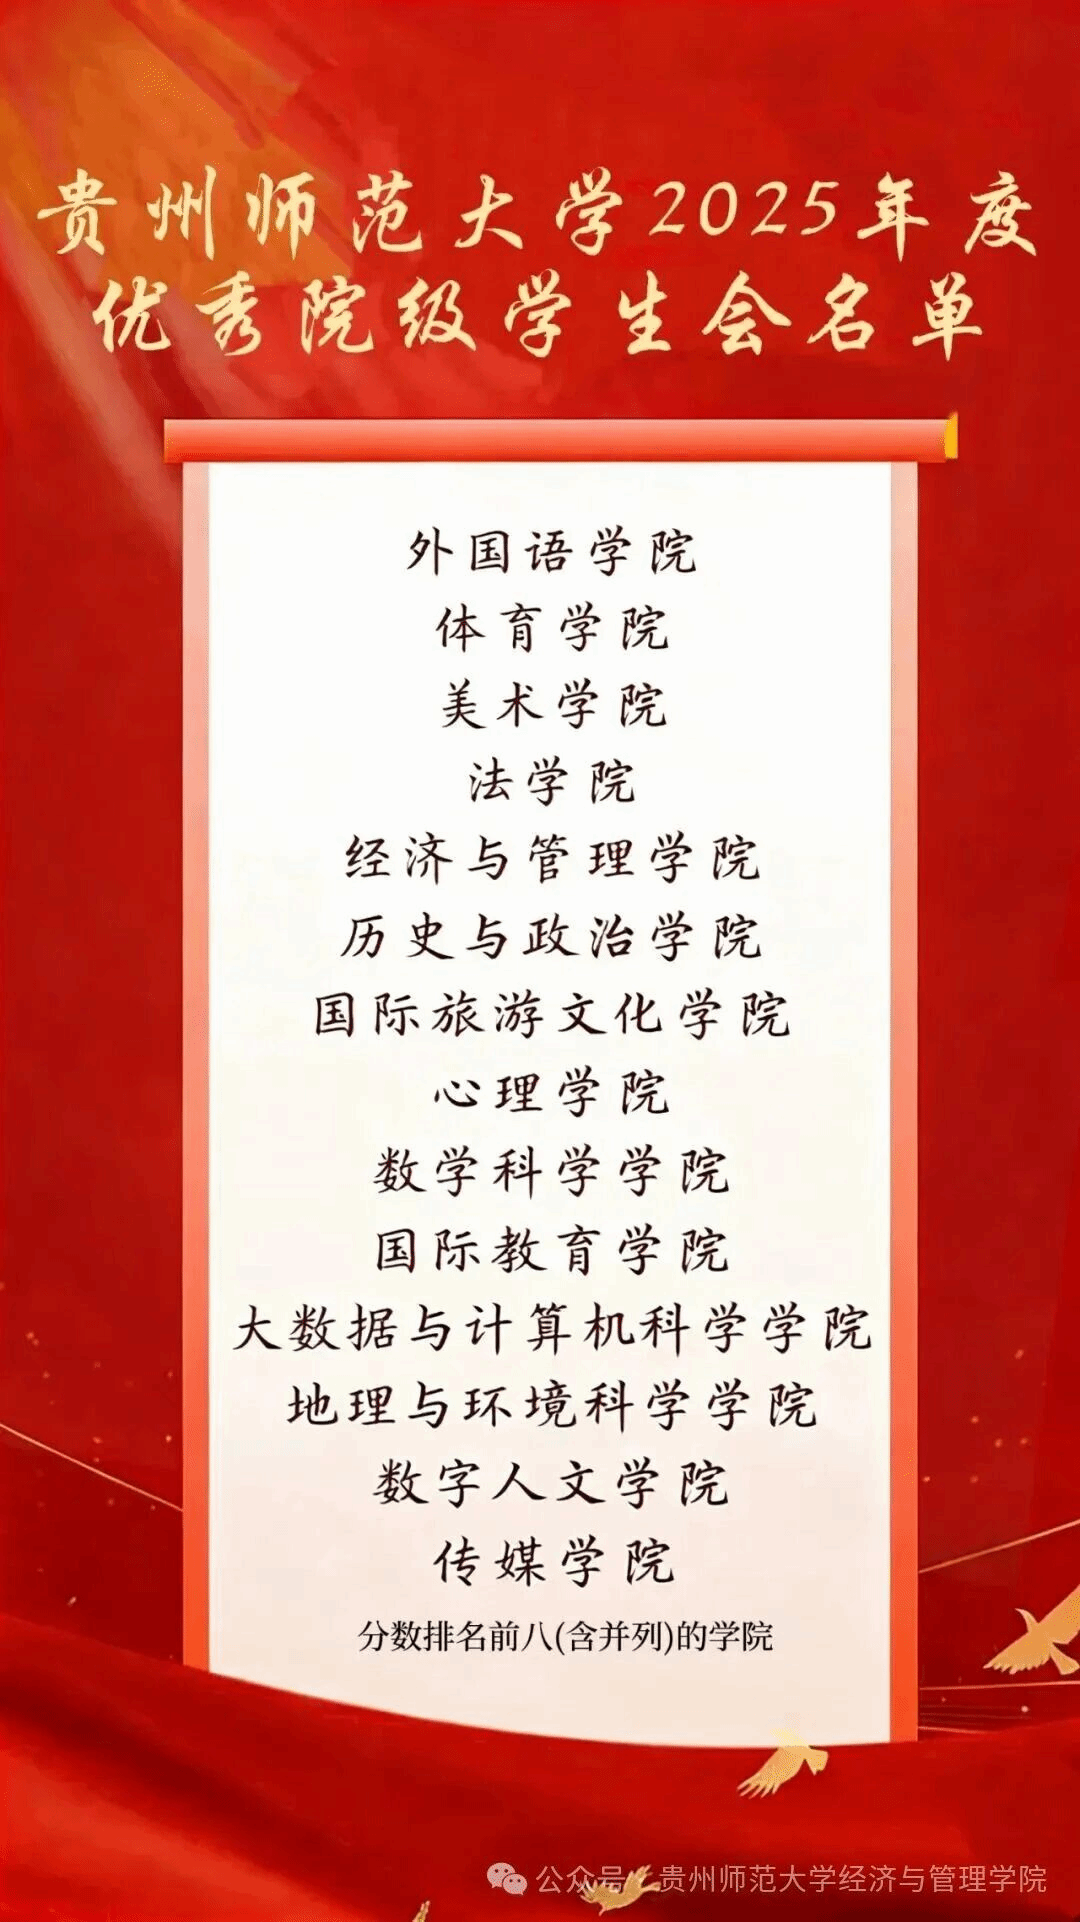 贵州师范大学2025年度
优秀院级学生会名单
外国语学院
体育学院
美术学院
法学院
经济与管理学院
历史与政治学院
国际旅游文化学院
心理学院
数学科学学院
国际教育学院
大数据与计算机科学学院
地理与环境科学学院
数字人文学院
传媒学院
分数排名前八(含并列)的学院
公众号：贵州师范大学经济与管理学院